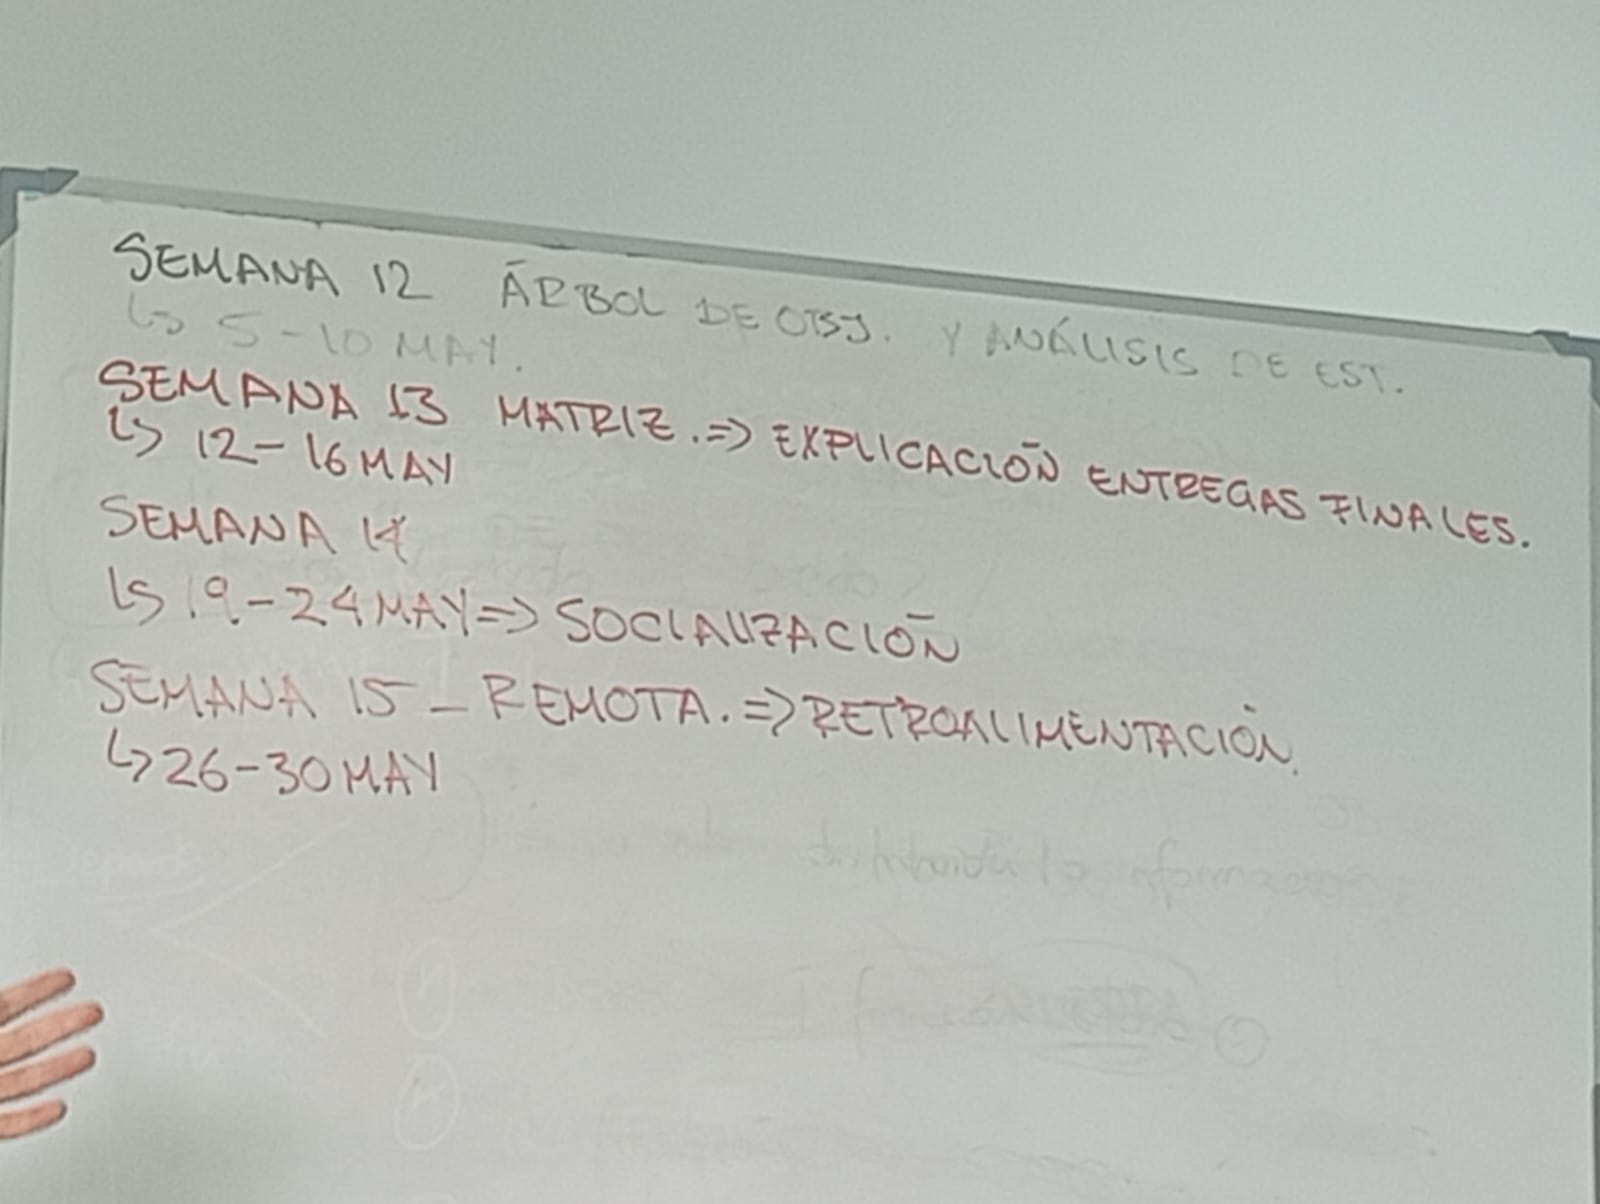 SEMANA 12 ÁRBOL DE OBJ. Y ANÁLISIS DE EST.
↳ 5-10 MAY.
SEMANA 13 MATRIZ. => EXPLICACIÓN ENTREGAS FINALES.
↳ 12-16 MAY
SEMANA 14
↳ 19-24 MAY => SOCIALIZACIÓN
SEMANA 15 - REMOTA. => RETROALIMENTACIÓN.
↳ 26-30 MAY